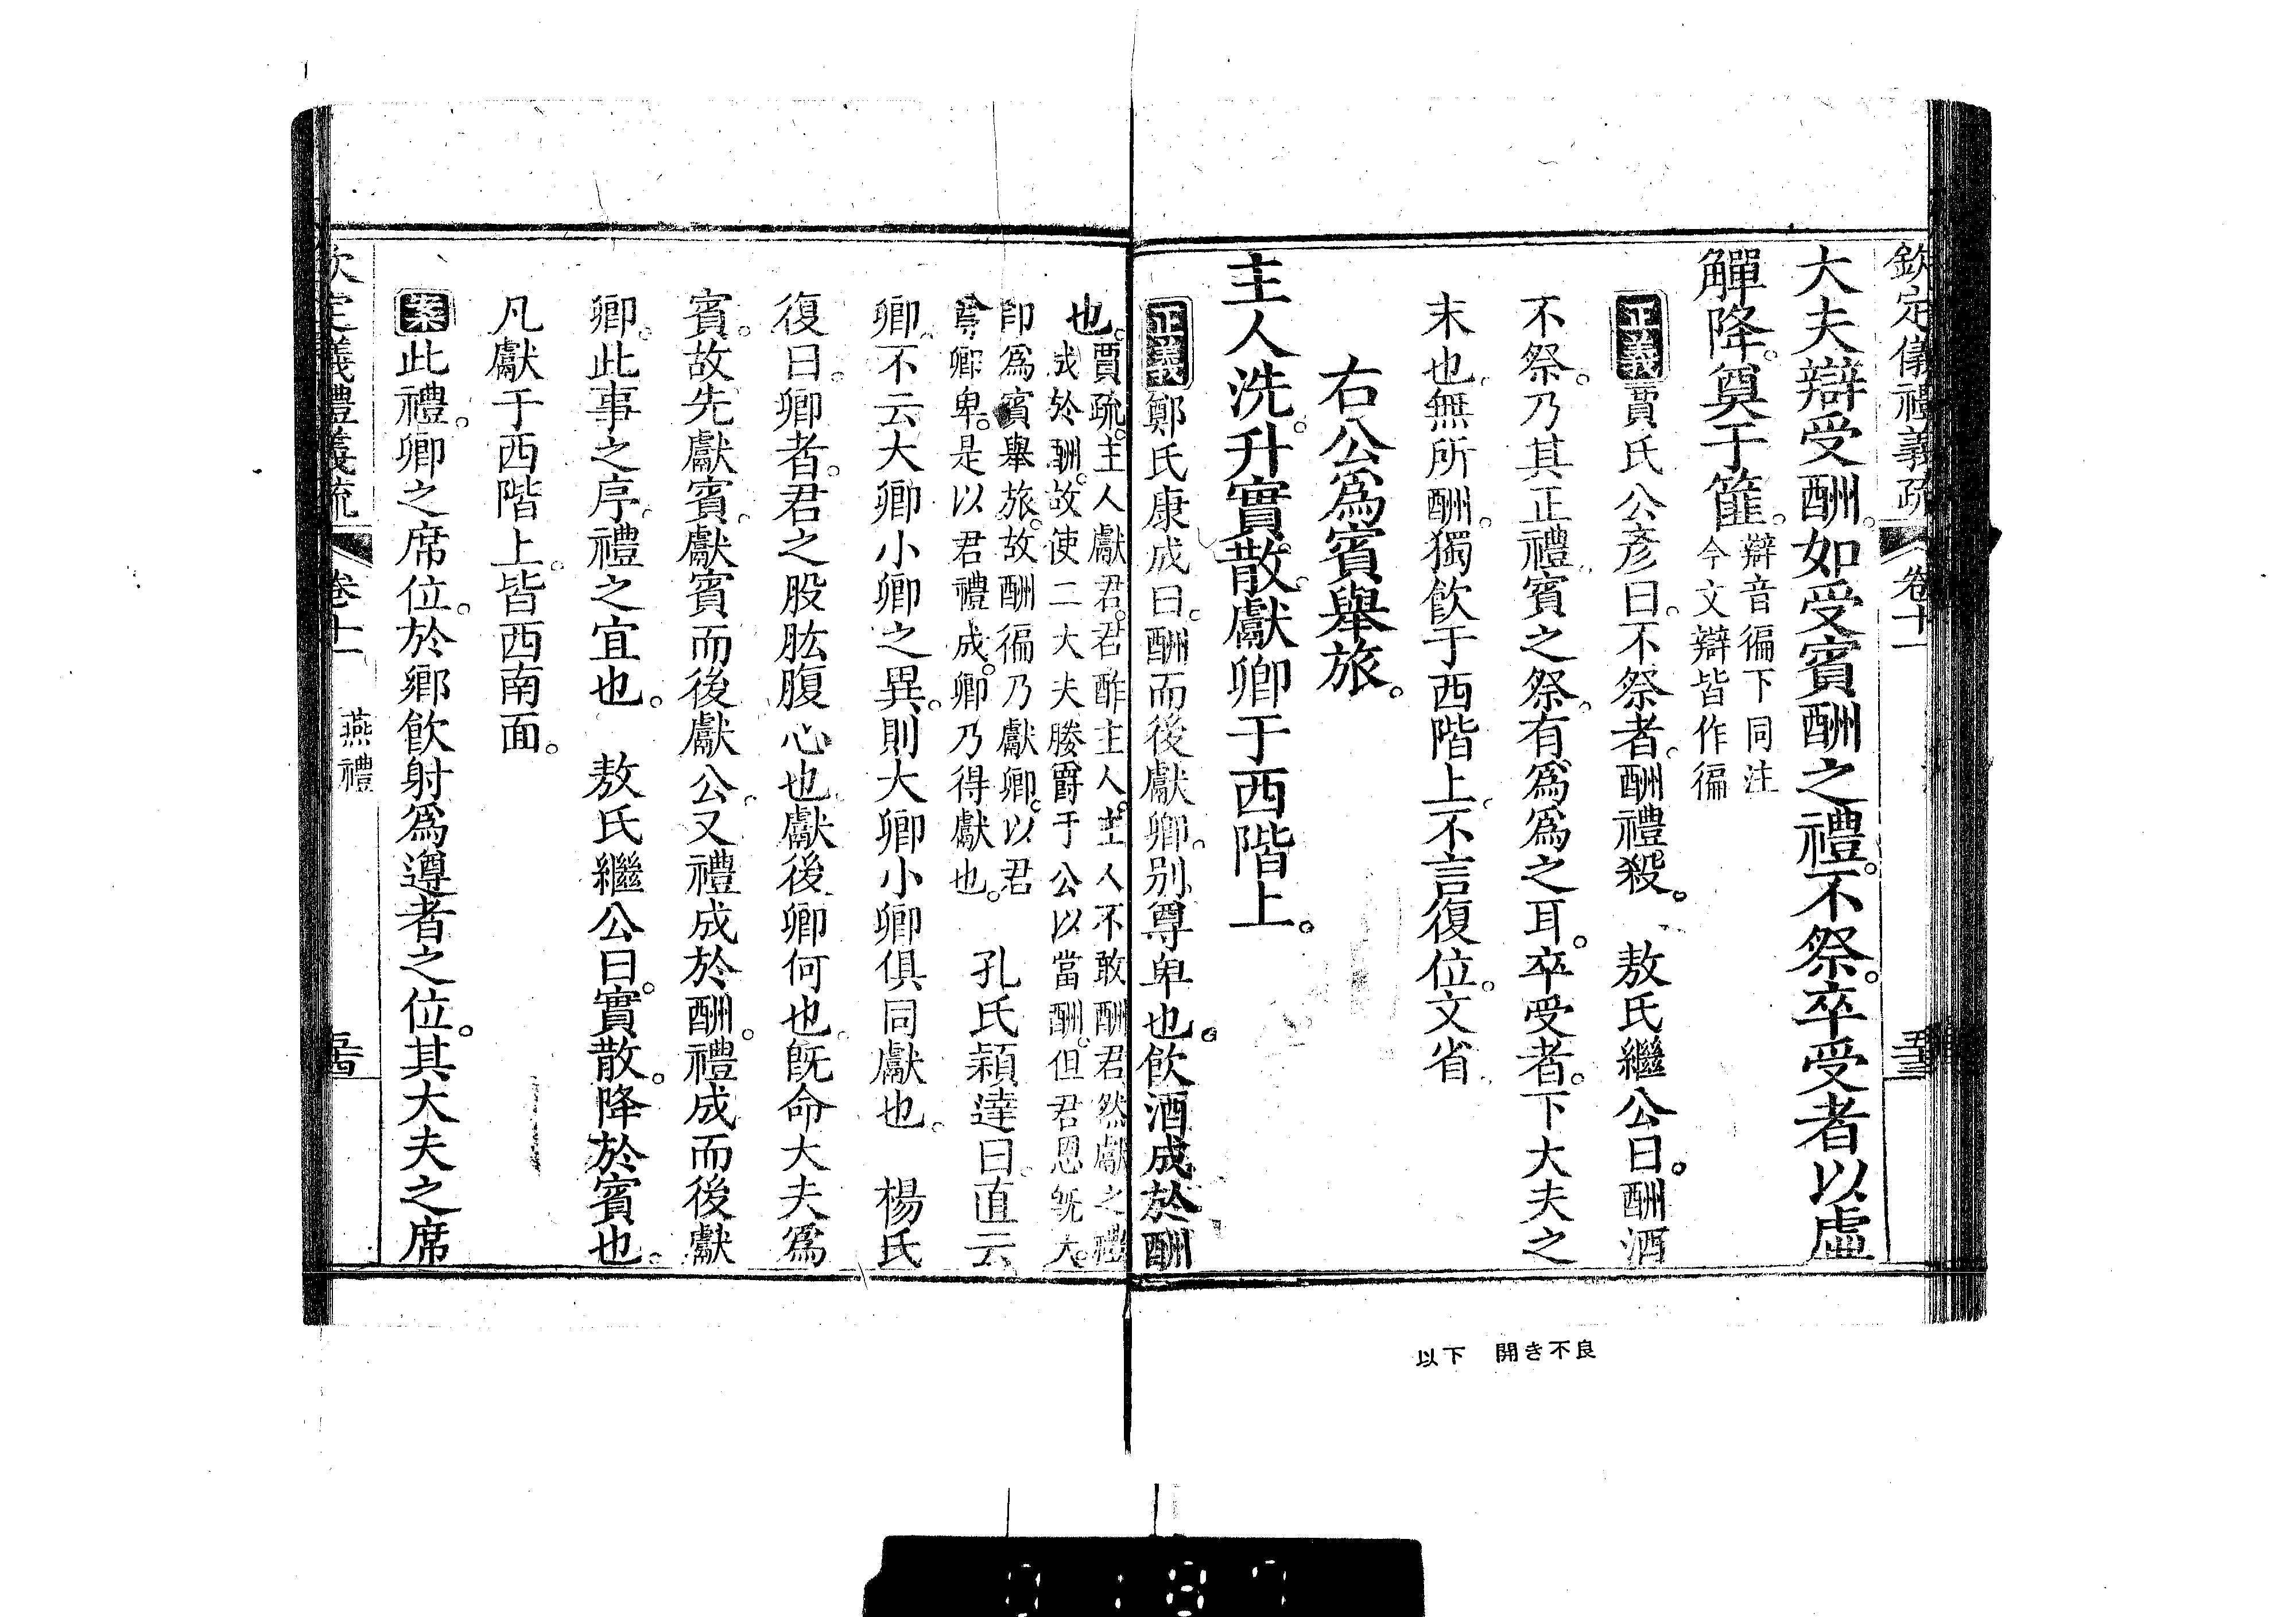 欽定儀禮義疏 卷十一 五十三
大夫辯受酬。如受賓酬之禮。不祭。卒受者以虛
觶降。奠于篚。辯音徧下同注
今文辯皆作徧
正義賈氏公彥曰。不祭者。酬禮殺。 敖氏繼公曰。酬酒
不祭。乃其正禮。賓之祭。有爲爲之耳。卒受者。下大夫之
末也。無所酬。獨飲于西階上。不言復位。文省。
右公爲賓舉旅。
主人洗。升實散。獻卿于西階上。
正義鄭氏康成曰。酬而後獻卿。別尊卑也。飲酒成於酬
也。賈疏。主人獻君。君酢主人。主人不敢酬君然獻之禮
成於酬。故使二大夫媵爵于公以當酬。但君恩旣大。
卽爲賓舉旅。故酬徧乃獻卿。以君
尊卿卑。是以君禮成。卿乃得獻也。 孔氏穎達曰。直云
卿。不云大卿小卿之異。則大卿小卿俱同獻也。 楊氏
復曰。卿者。君之股肱腹心也。獻後卿何也。旣命大夫爲
賓。故先獻賓。獻賓而後獻公。又禮成於酬。禮成而後獻
卿。此事之序。禮之宜也。 敖氏繼公曰。實散。降於賓也。
凡獻于西階上。皆西南面。
案此禮。卿之席位。於鄉飲射爲遵者之位。其大夫之席
欽定義禮義疏 卷十一 燕禮 五十四
以下 開き不良